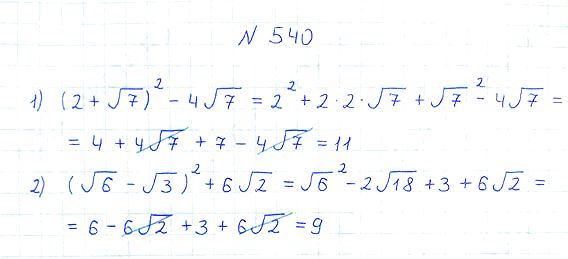 N 540
1) (2 + √7)² - 4√7 = 2² + 2·2·√7 + √7² - 4√7 =
= 4 + 4√7 + 7 - 4√7 = 11
2) (√6 - √3)² + 6√2 = √6² - 2√18 + 3 + 6√2 =
= 6 - 6√2 + 3 + 6√2 = 9